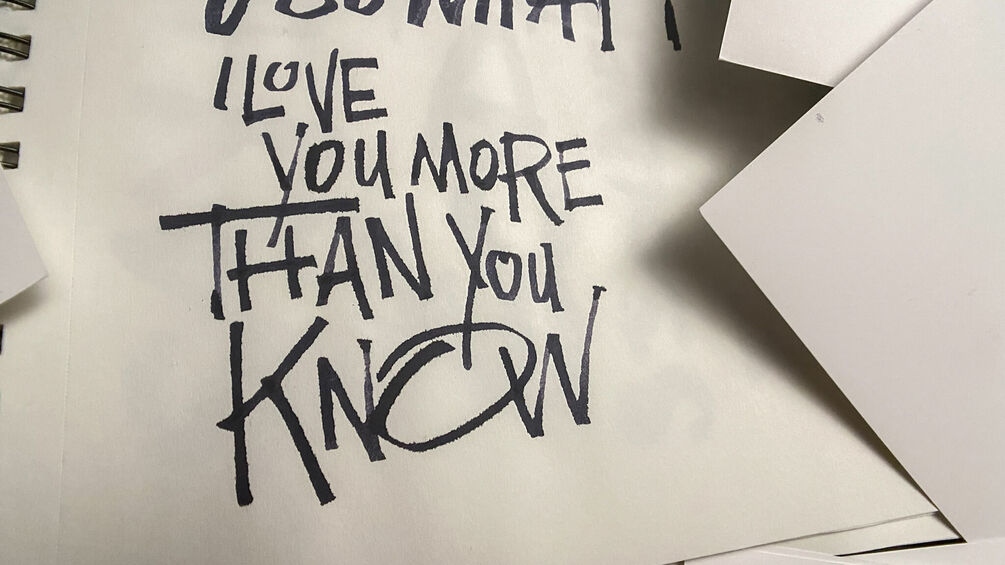 I LOVE
YOU MORE
THAN YOU
KNOW